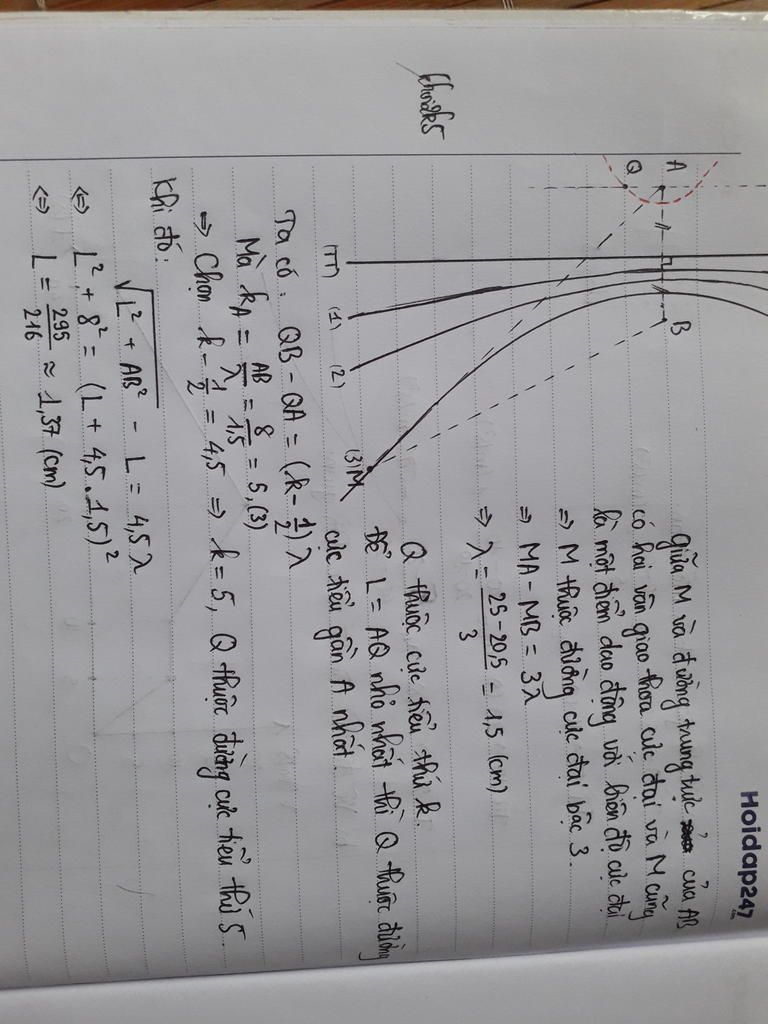 Hoidap247
.com
Giữa M và đường trung trực của AB
có hai vân giao thoa cực đại và M cũng
là một điểm dao động với biên độ cực đại
⇒ M thuộc đường cực đại bậc 3.
⇒ MA - MB = 3λ
⇒ λ = (25 - 20,5)/3 = 1,5 (cm)
A
B
Q
(TT)
(1)
(2)
(3)
M
Q thuộc cực tiểu thứ k.
Để L = AQ nhỏ nhất thì Q thuộc đường
cực tiểu gần A nhất.
Ta có: QB - QA = (k - 1/2) λ
Mà k_A = AB/λ = 8/1,5 = 5,(3)
⇒ Chọn k - 1/2 = 4,5 ⇒ k = 5, Q thuộc đường cực tiểu thứ 5
Khi đó:
√(L² + AB²) - L = 4,5 λ
⇔ L² + 8² = (L + 4,5.1,5)²
⇔ L = 295/216 ≈ 1,37 (cm)